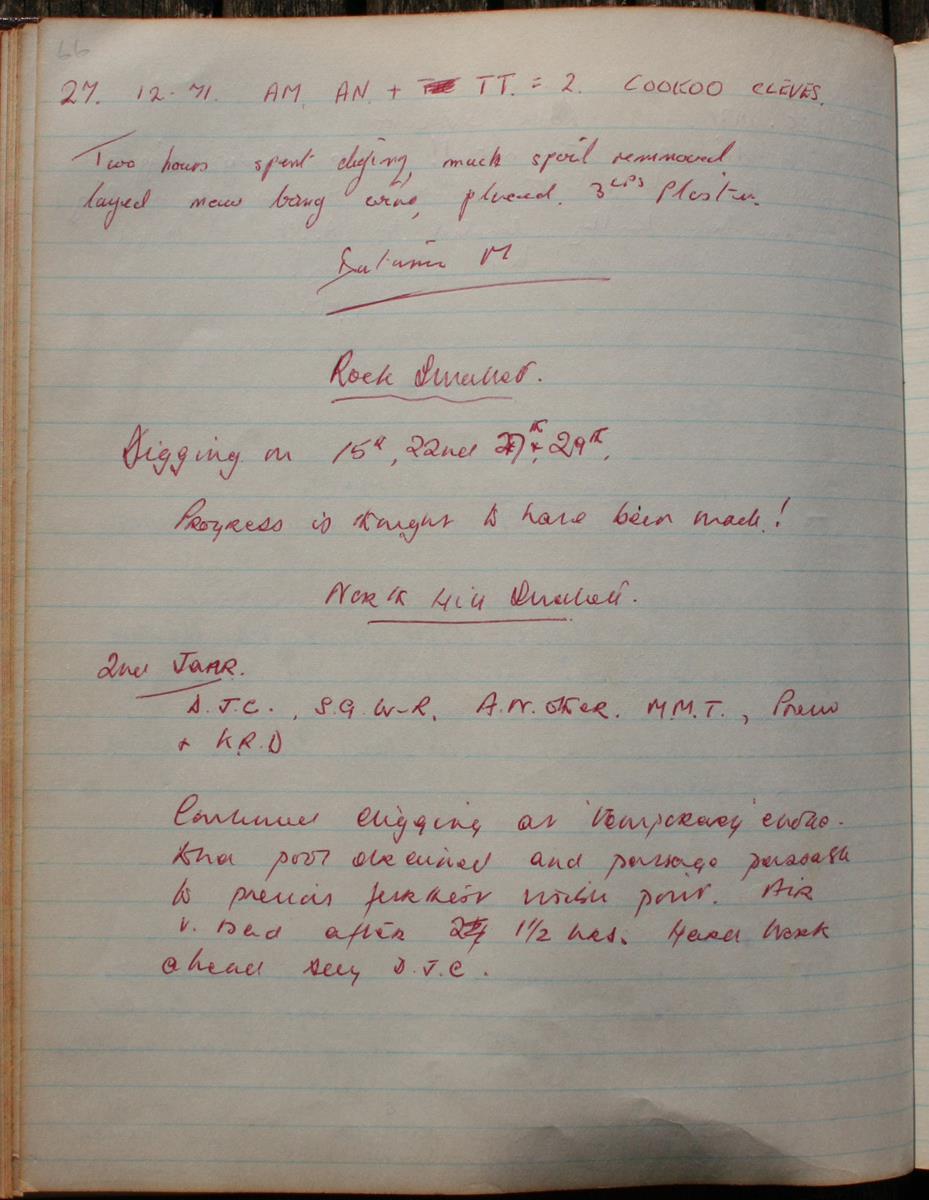 66
27. 12-71. AM. AN. + TT. = 2. COOKOO CLEVES.
Two hours spent diging, much spoil remmoved
layed new bang wire, placed. 3 LPS Plaster.
M
Rock Swallet.
Digging on 15th, 22nd 27th + 29th.
Progress is thought to have been made!
North Hill Swallet.
2nd JAAR.
D.J.C., S.G.W-R, A.N. other. M.M.T., Prew
+ K.R.D
Continued digging at 'temporary' ends.
pool drained and passage
to previous furthest point. Air
v. bad after 1 1/2 hrs. Hard work
ahead D.J.C.